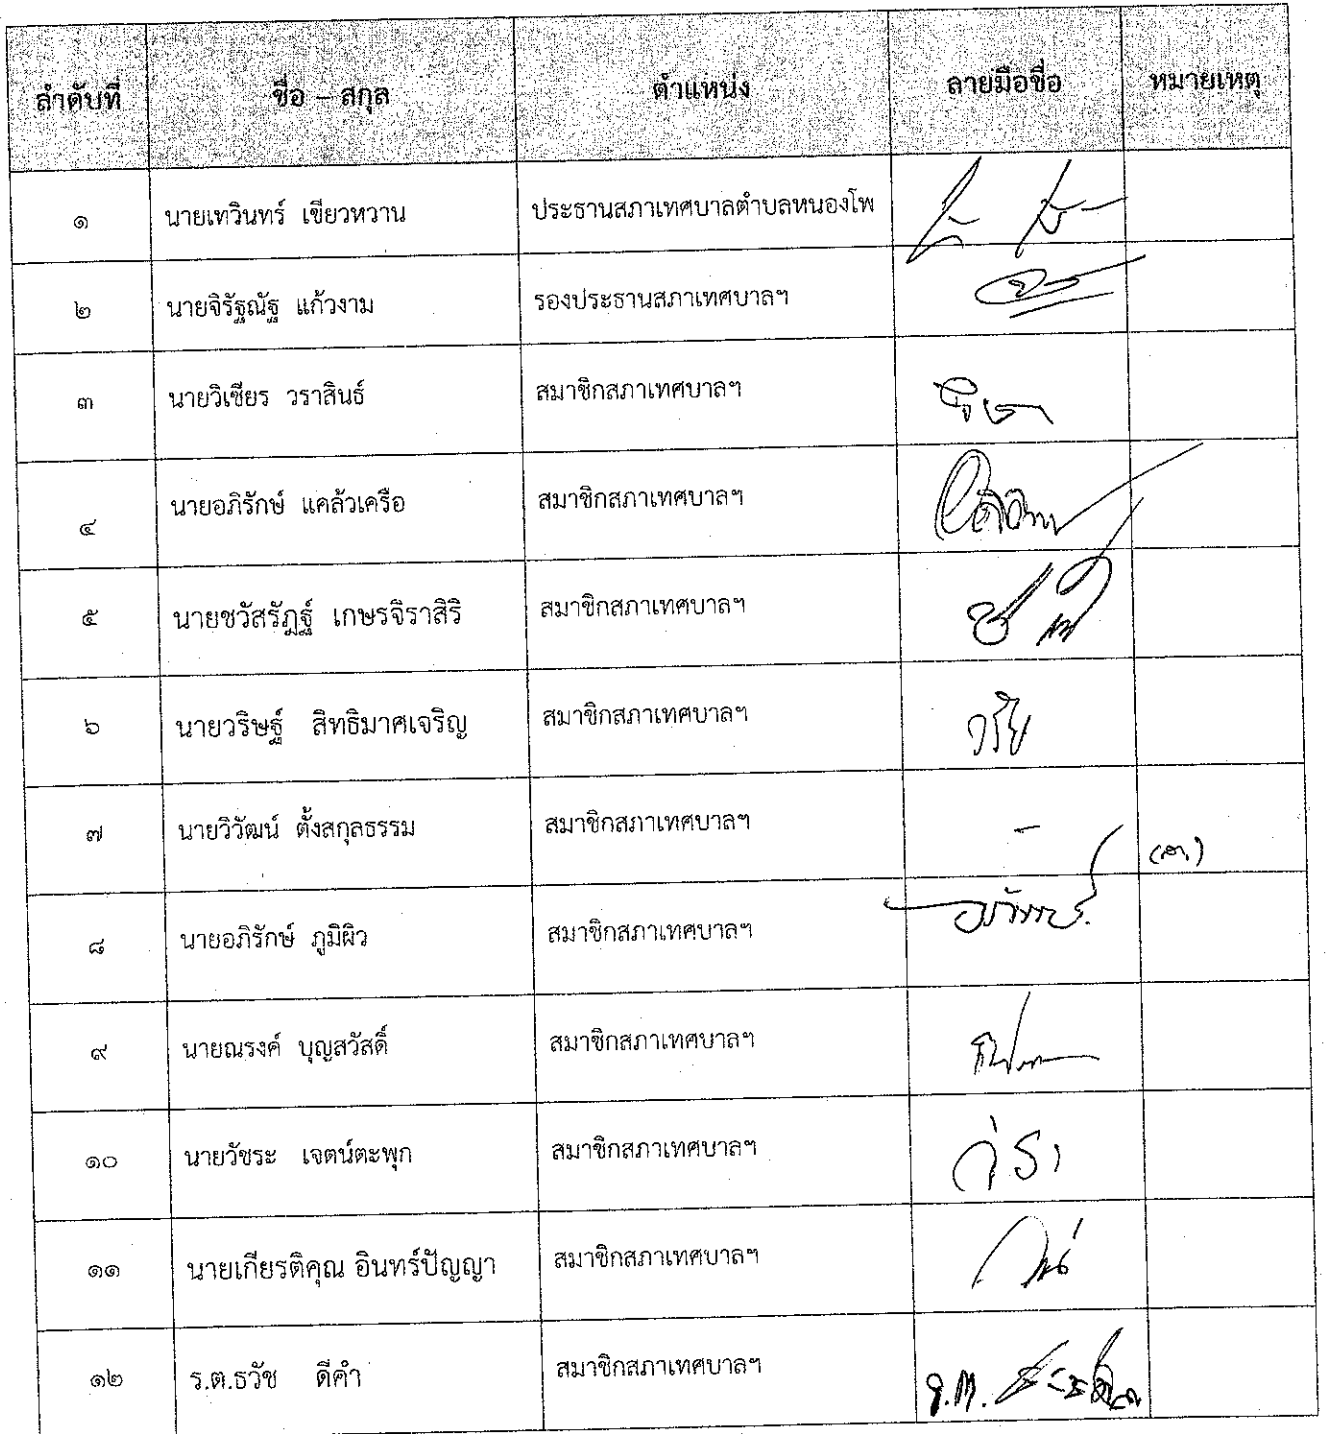 ลำดับที่ ชื่อ – สกุล ตำแหน่ง ลายมือชื่อ หมายเหตุ
๑ นายเทวินทร์ เขียวหวาน ประธานสภาเทศบาลตำบลหนองโพ
๒ นายจิรัฐณัฐ แก้วงาม รองประธานสภาเทศบาลฯ
๓ นายวิเชียร วราสินธ์ สมาชิกสภาเทศบาลฯ
๔ นายอภิรักษ์ แคล้วเครือ สมาชิกสภาเทศบาลฯ
๕ นายชวัสรัฎฐ์ เกษรจิราสิริ สมาชิกสภาเทศบาลฯ
๖ นายวริษฐ์ สิทธิมาศเจริญ สมาชิกสภาเทศบาลฯ
๗ นายวิวัฒน์ ตั้งสกุลธรรม สมาชิกสภาเทศบาลฯ -
๘ นายอภิรักษ์ ภูมิผิว สมาชิกสภาเทศบาลฯ
๙ นายณรงค์ บุญสวัสดิ์ สมาชิกสภาเทศบาลฯ
๑๐ นายวัชระ เจตน์ตะพุก สมาชิกสภาเทศบาลฯ
๑๑ นายเกียรติคุณ อินทร์ปัญญา สมาชิกสภาเทศบาลฯ
๑๒ ร.ต.ธวัช ดีคำ สมาชิกสภาเทศบาลฯ ร.ต.